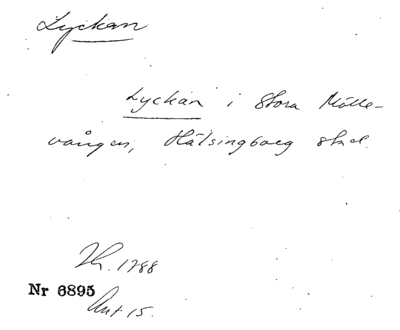 Lyckan
Lyckan i Stora Mölle-
vången, Hälsingborg stad.
Th. 1788
Nr 6895
Ant 15.